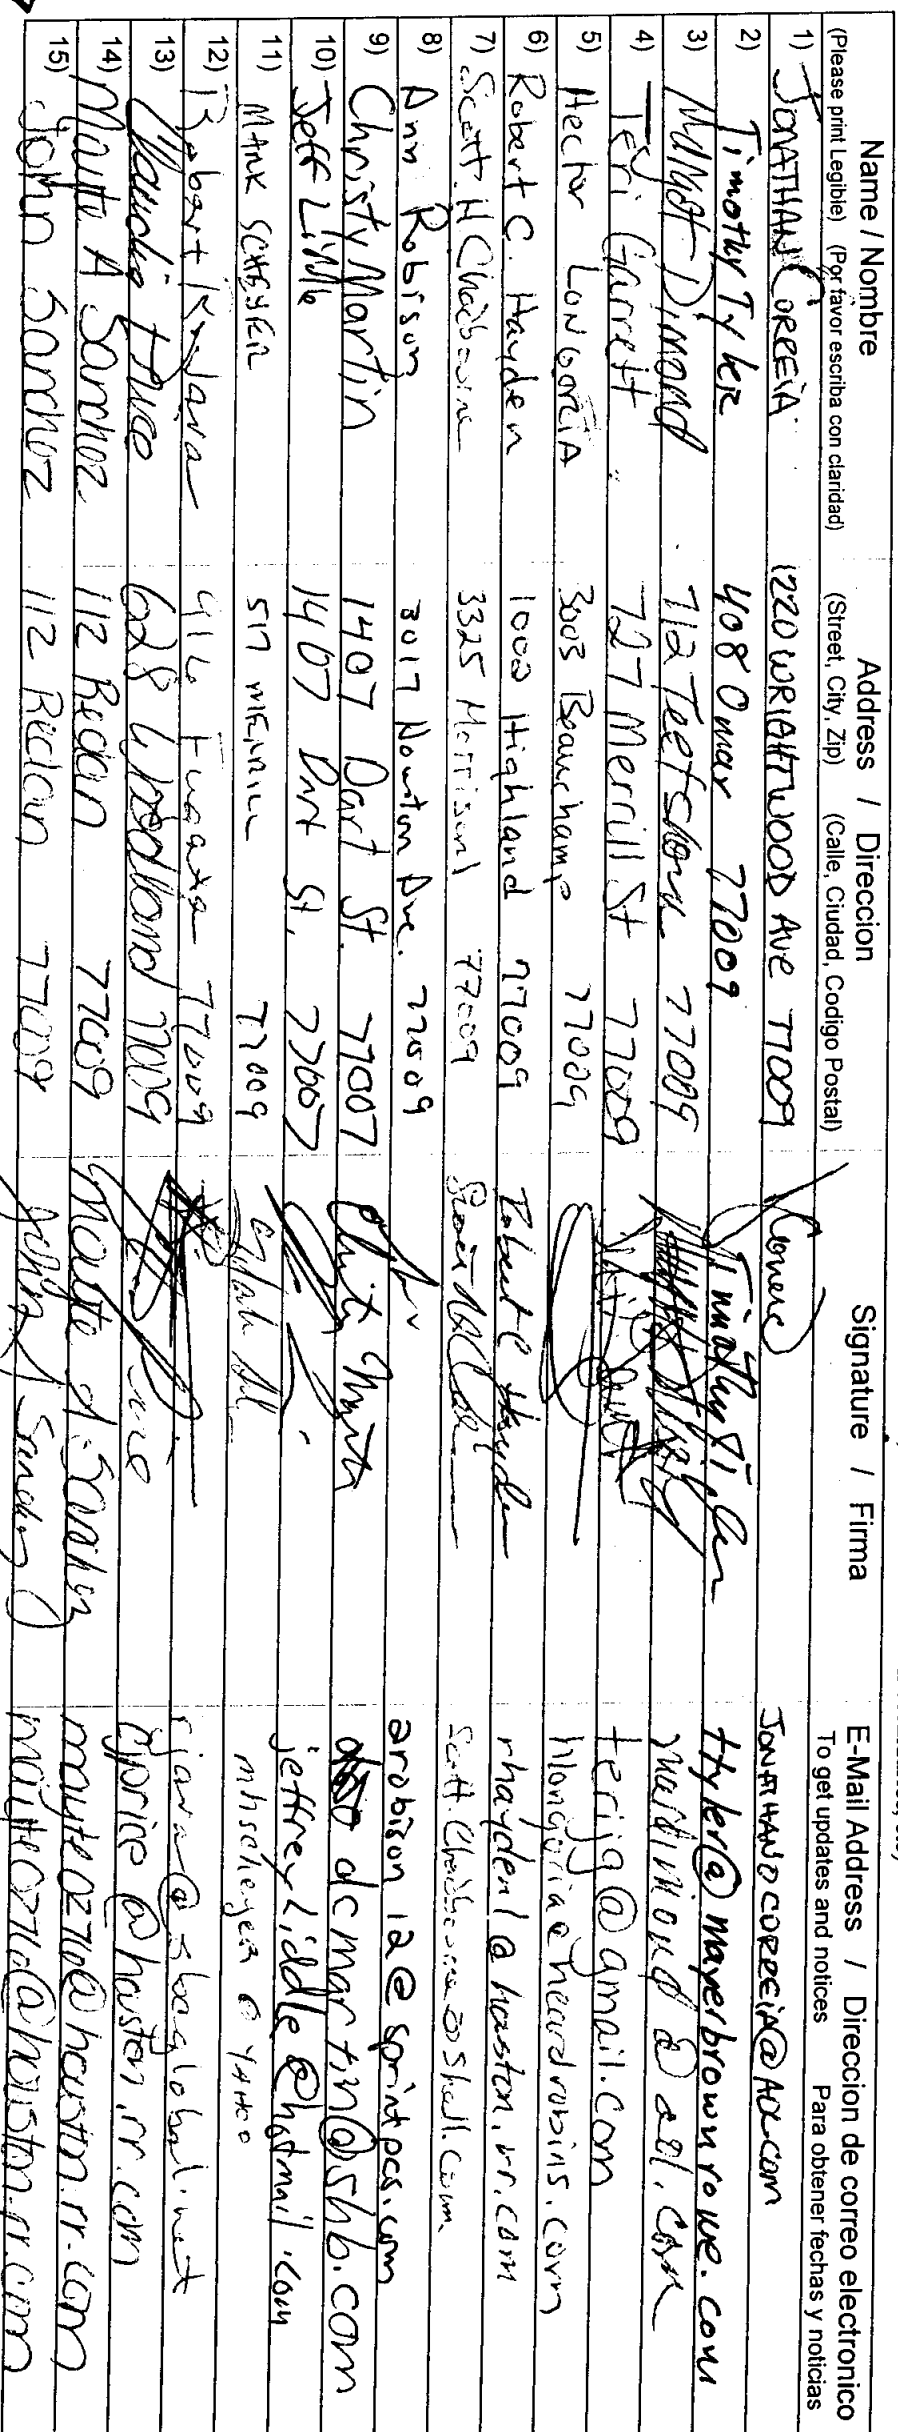 Name / Nombre Address / Direccion Signature / Firma E-Mail Address / Direccion de correo electronico
(Please print Legible) (Por favor escriba con claridad) (Street, City, Zip) (Calle, Ciudad, Codigo Postal) To get updates and notices Para obtener fechas y noticias
1) JONATHAN CORREIA 1220 WRIAHTWOOD AVE 77009 JONATHANDCORREIA@AOL.COM
2) Timothy Tyler 408 Omar 77009 Timothy Tyler ttyler@mayerbrownrowe.com
3) Dimond 712 Teetshorn 77009 @aol.com
4) Teri Garrett 727 Merrill St 77009 terijg@gmail.com
5) Hector LONGORIA 3003 Beauchamp 77009 hlongoria@heardrobins.com
6) Robert C. Hayden 1000 Highland 77009 Robert C Hayden rhayden1@houston.rr.com
7) Scott. H Chadbourne 3325 Morrison 77009 Scott.Chadbourne@Shell.com
8) Ann Robison 3017 Houston Ave. 77009 arobison12@sprintpcs.com
9) Christy Martin 1407 Dart St. 77007 dcmartin@shb.com
10) Jeff Liddle 1407 Dart St. 77007 jeffreyliddle@hotmail.com
11) MARK SCHEYER 517 MERRILL 77009 mhscheyer@YAHOO
12) Robert 416 Euclid 77009 @sbcglobal.net
13) Price 628 Woodland 77009 @houston.rr.com
14) Mayte A Sanchez 112 Redan 77009 Mayte A. Sanchez mayte0276@houston.rr.com
15) John Sanchez 112 Redan 77009 Sanchez mayte0276@houston.rr.com